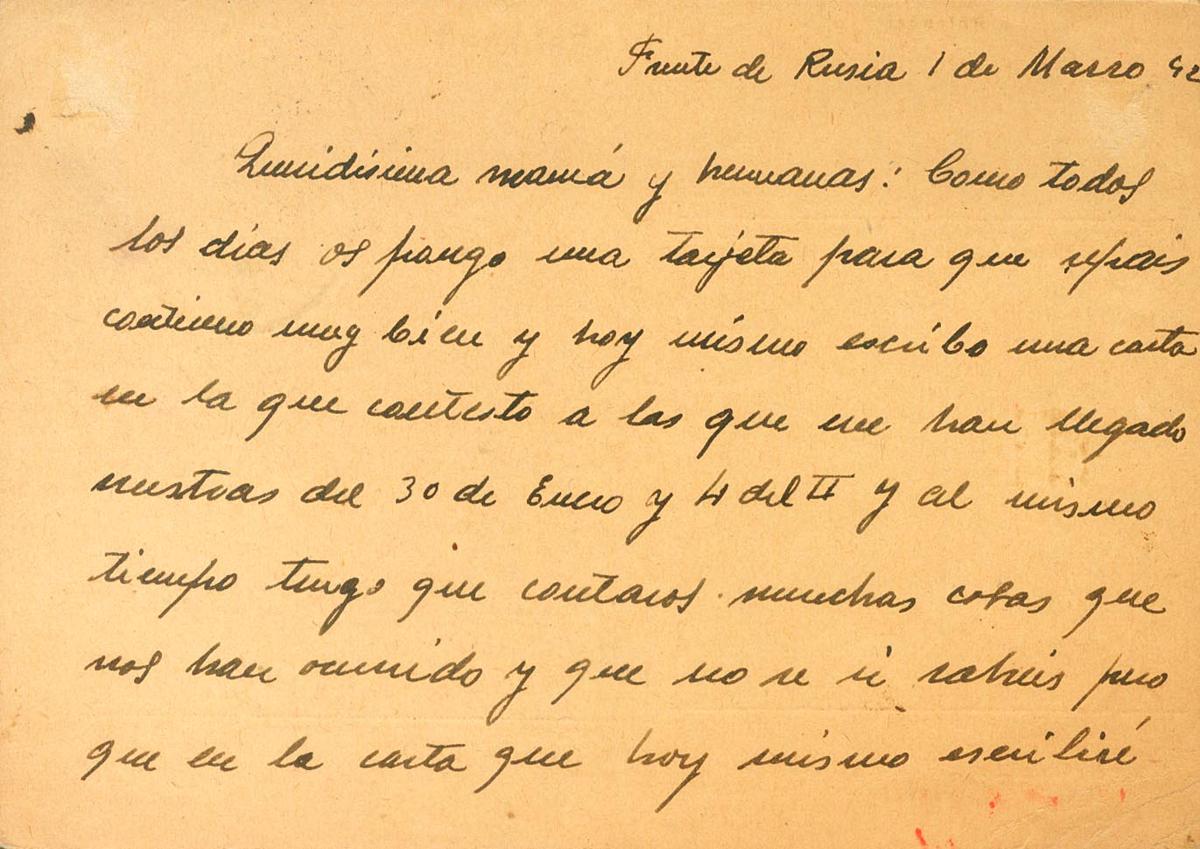 Frente de Rusia 1 de Marzo 42
Queridísima mamá y hermanas: Como todos
los días os pongo una tarjeta para que sepais
continuo muy bien y hoy mismo escribo una carta
en la que contesto a las que me han llegado
vuestras del 30 de Enero y 4 del II y al mismo
tiempo tengo que contaros muchas cosas que
nos han ocurrido y que no se si sabreis pero
que en la carta que hoy mismo escribiré